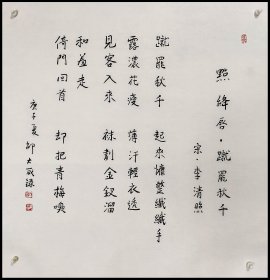 點絳唇·蹴罷秋千
宋·李清照
蹴罷秋千 起來慵整纖纖手
露濃花瘦 薄汗輕衣透
見客入來 袜剗金釵溜
和羞走
倚門回首 却把青梅嗅
庚子夏